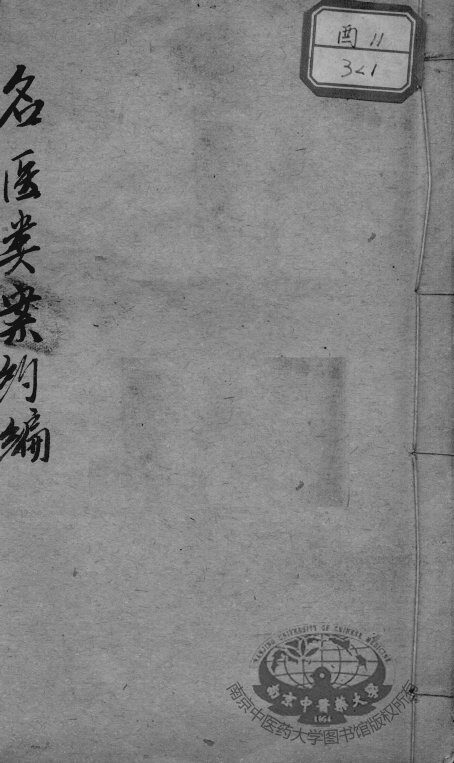 名医类案约编
酉 11
321
NANJING UNIVERSITY OF CHINESE MEDICINE
南京中醫藥大學
1954
南京中医药大学图书馆版权所有